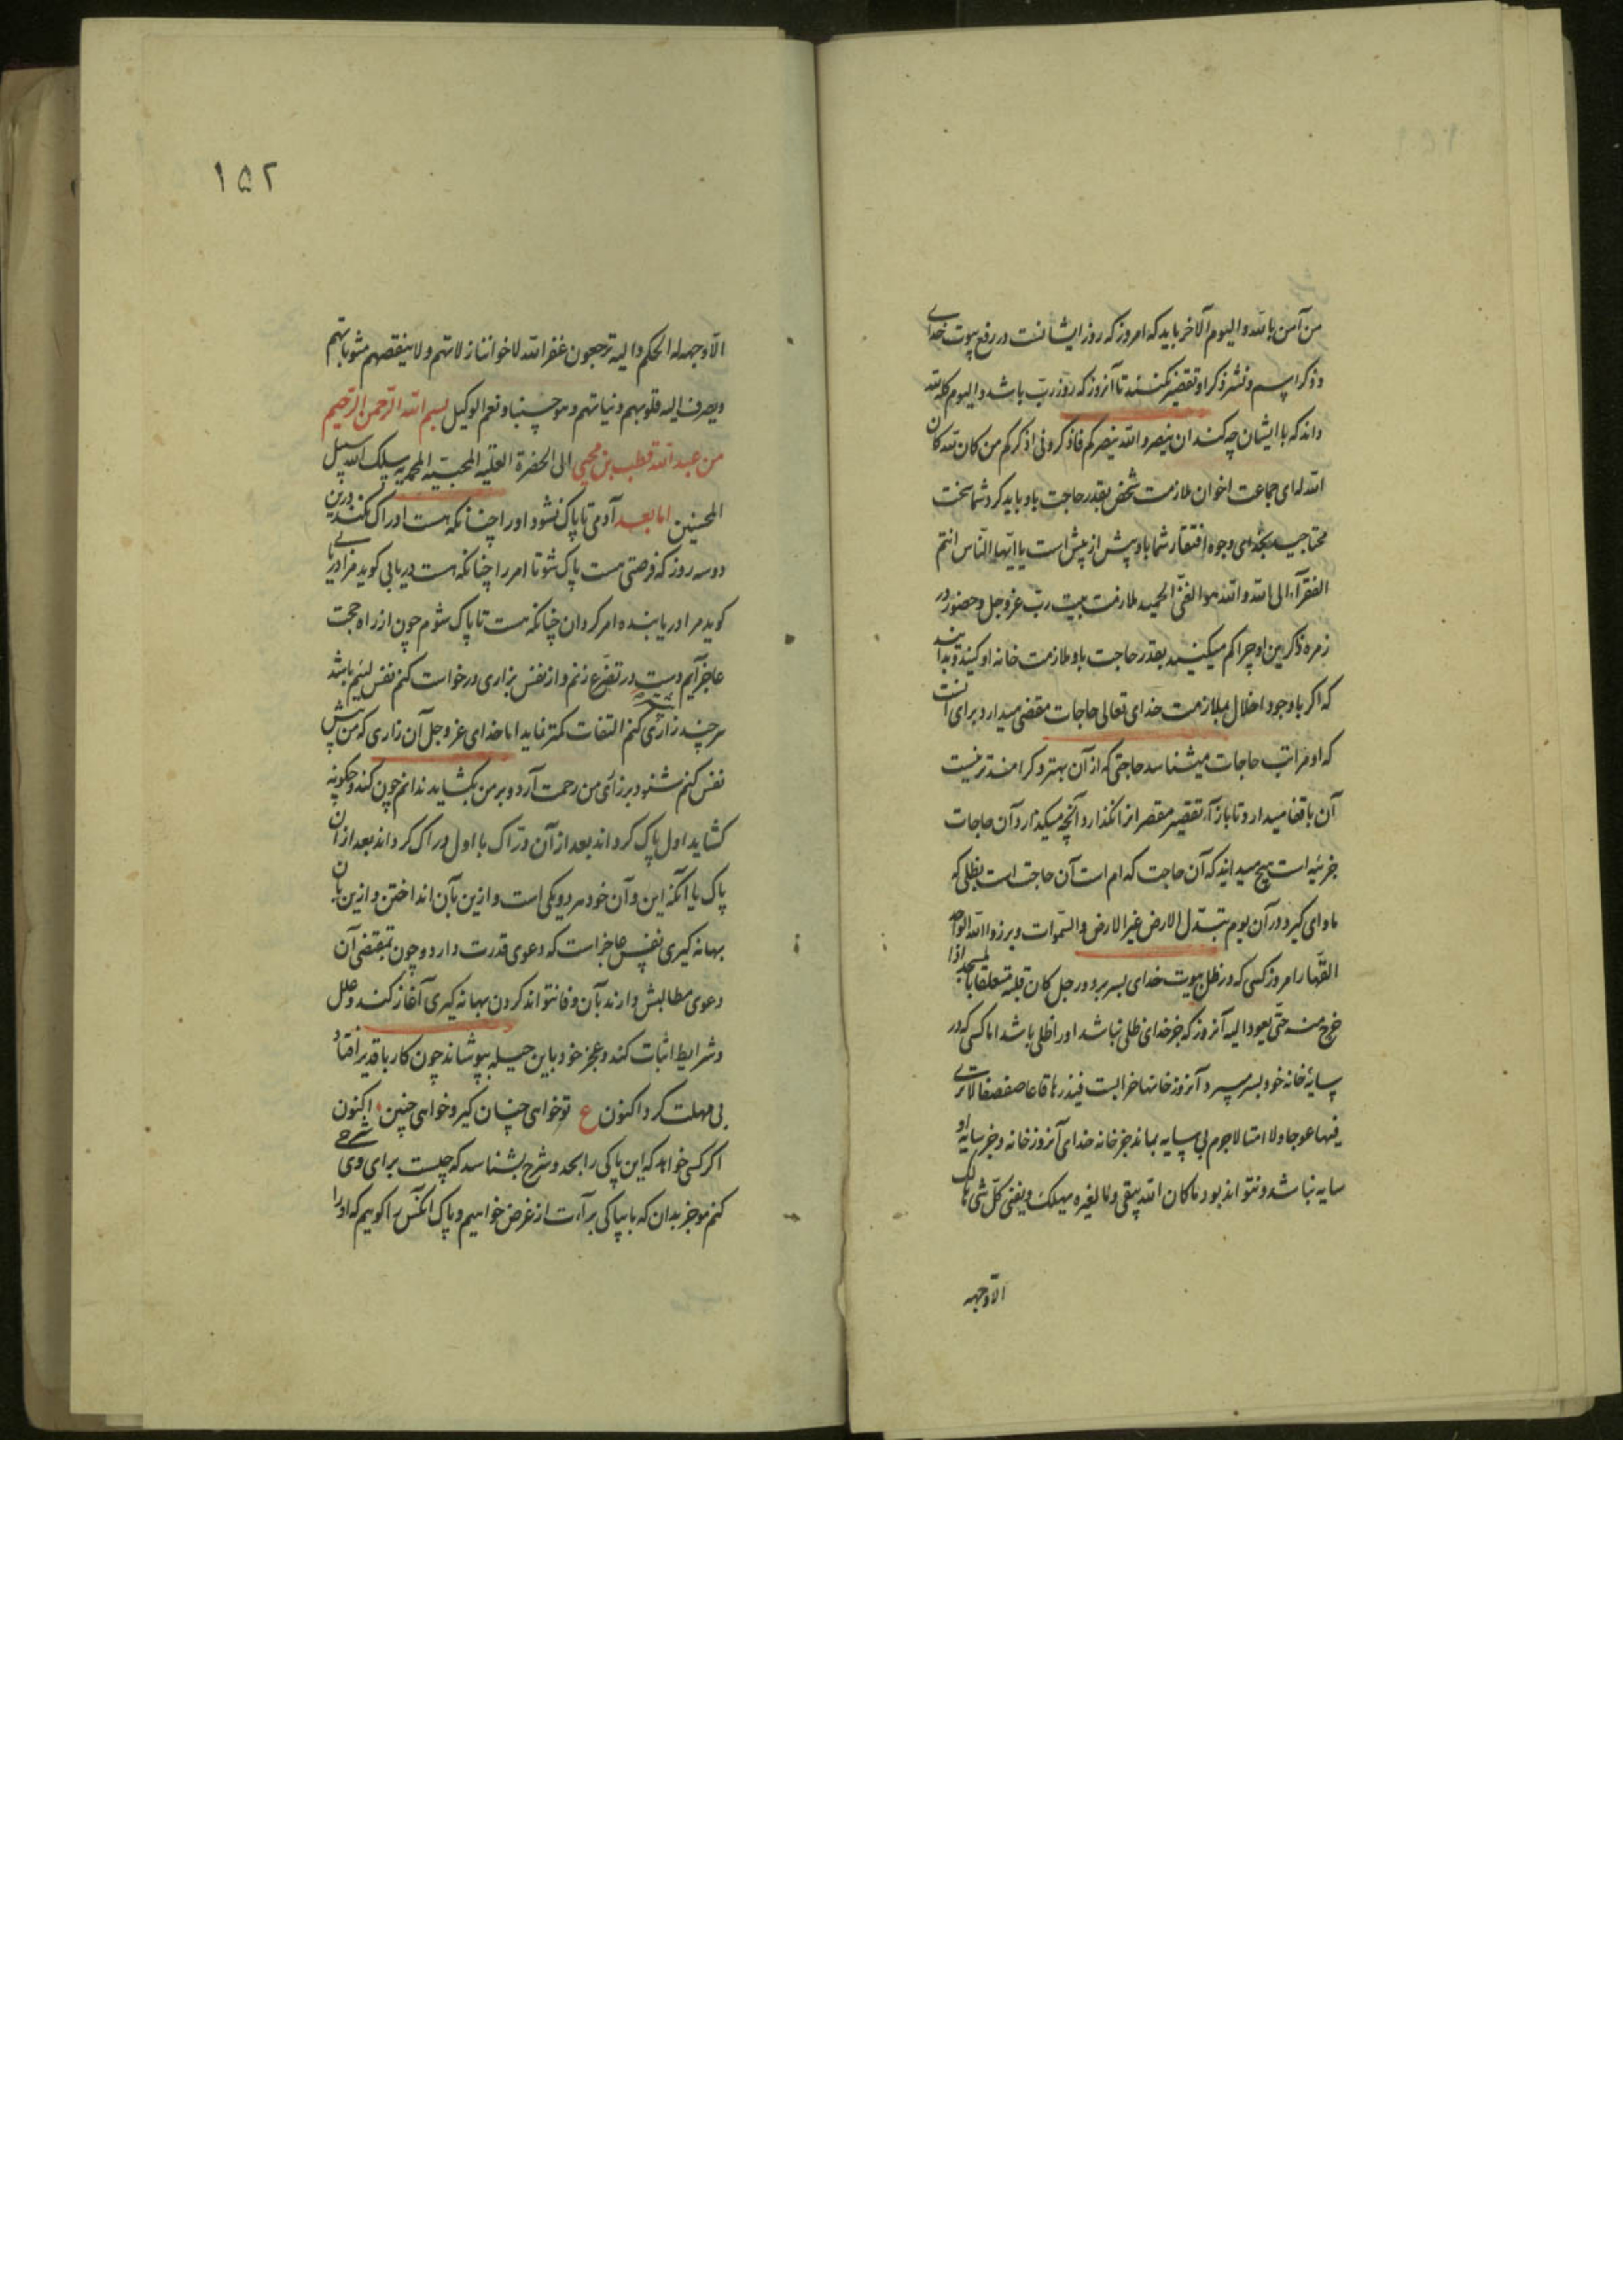 من آمن بالله والیوم الآخر باید که امروز که روز ایشانست در رفع بیوت خدای
و ذکر اسم و نشر ذکر او تقصیر نکنند تا آنروز که روز ربّ باشد والیوم کله لله
داند که با ایشان چه کند ان ینصروا لله ینصرکم فاذکرونی اذکرکم من کان لله کان
الله له ای جماعت اخوان ملازمت شخص بقدر حاجت باو باید کرد شما سخت
محتاجید بخدای وجوه افتقار شما باو بیش از پیش است یا ایّها النّاس انتم
الفقرآء الی الله والله هو الغنیّ الحمید ملازمت بیت ربّ عزّ و جل و حضور در
زمره ذاکرین او چرا کم میکنید بقدر حاجت باو ملازمت خانه او کنید و بدانید
که اگر با وجود اخلال بملازمت خدای تعالی حاجات مقضی میدارد برای آنست
که او مراتب حاجات میشناسد حاجتی که از آن بهتر و کرامندتر نیست
آن باقضا میدارد تا باز آرد تقصیر مقصر انرا نگذارد آنچه میگذارد آن حاجات
جزئیه است هیچ میدانید که آن حاجت کدام است آن حاجت است بظلی که
ماوای گیرد در آن یوم تبدّل الارض غیر الارض والسّموات وبرزوا لله الواحد
القهّار امروز کسی که در ظل بیوت خدای بسر برد ورجل کان قلبه متعلقا بالمسجد اذا
خرج منه حتّی یعود الیه آنروز که جز خدای ظلی نباشد او را ظلی باشد اما کسی که در
سایهٔ خانه خود بسر میبرد آنروز خانها خرابست فیذرها قاعا صفصفا لاتری
فیها عوجا ولا امتا لاجرم بی سایه بماند جز خانه خدای آنروز خانه و جز سایه او
سایه نباشد و نتواند بود ما کان لله یبقی وما لغیره یهلک ویفنی کلّ شی هالک
الّا وجهه
۱۵۲
الّا وجهه له الحکم والیه ترجعون غفر الله لاخواننا زلاتهم ولا ینقصهم مثوباتهم
ویصرف الیه قلوبهم ونیاتهم وهو حسبنا ونعم الوکیل بسم الله الرّحمن الرّحیم
من عبد الله قطب بن محیی الی الحضرة العلیّه المحبیّه المحمدیه سلک الله سبیل
المحسنین اما بعد آدمی تا پاک نشود او را چنانکه هست ادراک نکند درین
دو سه روز که فرصتی هست پاک شو تا امر را چنانکه هست دریابی گوید مرا دریاب
گوید مرا دریابنده امر گردان چنانکه هست تا پاک شوم چون از راه حجت
عاجز آیم دست در تضرّع زنم و از نفس بزاری درخواست کنم نفس لئیم باشد
هر چند زاری کنم التفات کمتر نماید اما خدای عزّ و جل آن زاری که من پیش
نفس کنم شنود بر زاری من رحمت آرد و بر من بگشاید ندانم چون کند و چگونه
گشاید اول پاک گرداند بعد از آن درّاک یا اول درّاک گرداند بعد از آن
پاک یا آنکه این و آن خود هر دو یکی است و ازین بآن انداختن و ازین بآن
بهانه گیری نفس عاجز است که دعوی قدرت دارد و چون بمقتضی آن
دعوی مطالبش دارند بآن وفا نتواند کردن بهانه گیری آغاز کند و علل
و شرایط اثبات کند و عجز خود باین حیله بپوشاند چون کار با قدیر افتاد
بی مهلت گردد اکنون ع تو خواهی چنان گیر و خواهی چنین اکنون
اگر کسی خواهد که این پاکی را بحد و شرح بشناسد که چیست برای وی شرحی
کنم موجز بدان که ما بپاکی برآءت از غرض خواهیم و پاک آنکس را گوییم که او را